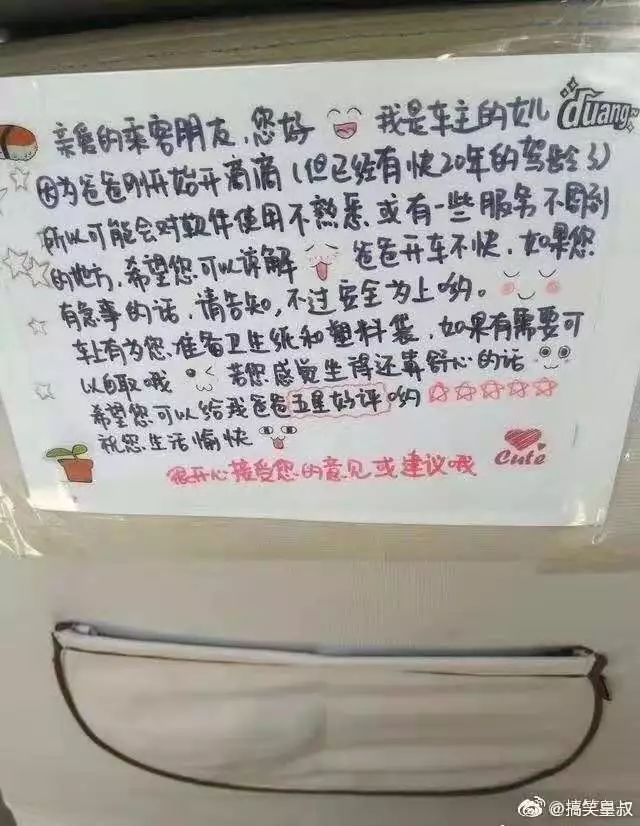 亲爱的乘客朋友，您好 我是车主的女儿 duang
因为爸爸刚开始开离滴（但已经有快20年的驾龄了）
所以可能会对软件使用不熟悉或有一些服务不周到
的地方，希望您可以谅解 爸爸开车不快，如果您
有急事的话，请告知，不过安全为上哟。
车上有为您准备卫生纸和塑料袋，如果有需要可
以自取哦 若您感觉坐得还算舒心的话
希望您可以给我爸爸五星好评哟
祝您生活愉快
Cute
很开心接受您的意见或建议哦
@搞笑皇叔